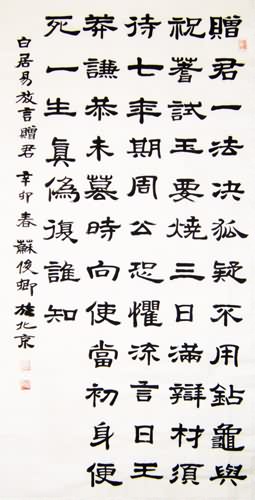 贈君一法決狐疑不用鉆龜與
祝蓍試玉要燒三日滿辯材須
待七年期周公恐懼流言日王
莽謙恭未墓時向使當初身便
死一生眞僞復誰知
白居易放言贈君 辛卯春 蘇俊卿於北京